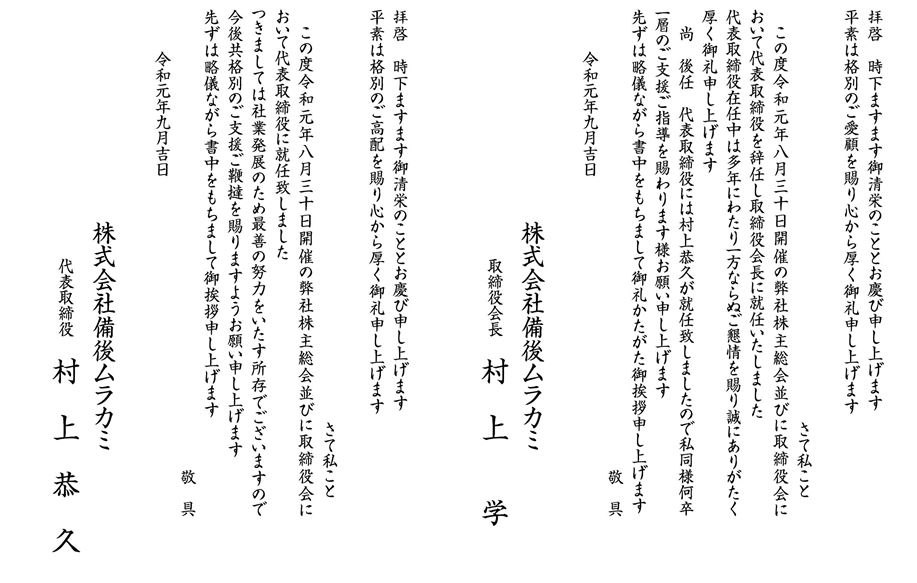 拝啓　時下ますます御清栄のこととお慶び申し上げます
平素は格別のご愛顧を賜り心から厚く御礼申し上げます
さて私こと
この度令和元年八月三十日開催の弊社株主総会並びに取締役会に
おいて代表取締役を辞任し取締役会長に就任いたしました
代表取締役在任中は多年にわたり一方ならぬご懇情を賜り誠にありがたく
厚く御礼申し上げます
尚　後任　代表取締役には村上恭久が就任致しましたので私同様何卒
一層のご支援ご指導を賜わります様お願い申し上げます
先ずは略儀ながら書中をもちまして御礼かたがた御挨拶申し上げます
敬　具
令和元年九月吉日
株式会社備後ムラカミ
取締役会長　村　上　　学
拝啓　時下ますます御清栄のこととお慶び申し上げます
平素は格別のご高配を賜り心から厚く御礼申し上げます
さて私こと
この度令和元年八月三十日開催の弊社株主総会並びに取締役会に
おいて代表取締役に就任致しました
つきましては社業発展のため最善の努力をいたす所存でございますので
今後共格別のご支援ご鞭撻を賜りますようお願い申し上げます
先ずは略儀ながら書中をもちまして御挨拶申し上げます
敬　具
令和元年九月吉日
株式会社備後ムラカミ
代表取締役　村　上　恭　久